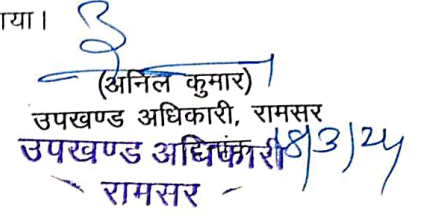 गया।
(अनिल कुमार)
उपखण्ड अधिकारी, रामसर
उपखण्ड अधिकारी 18/3/24
रामसर